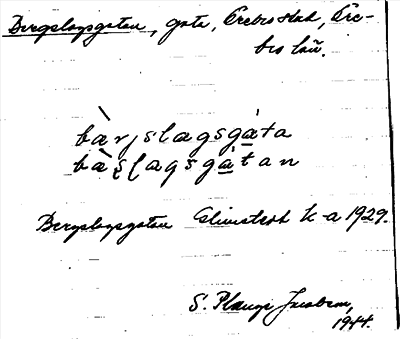 Bergslagsgatan, gata, Örebro stad, Öre-
bro län.
bàrjslagsgàta
bàşļagsgàtan
Bergslagsgatan Almstedt K-a 1929.
S. Plange Jacobson,
1944.